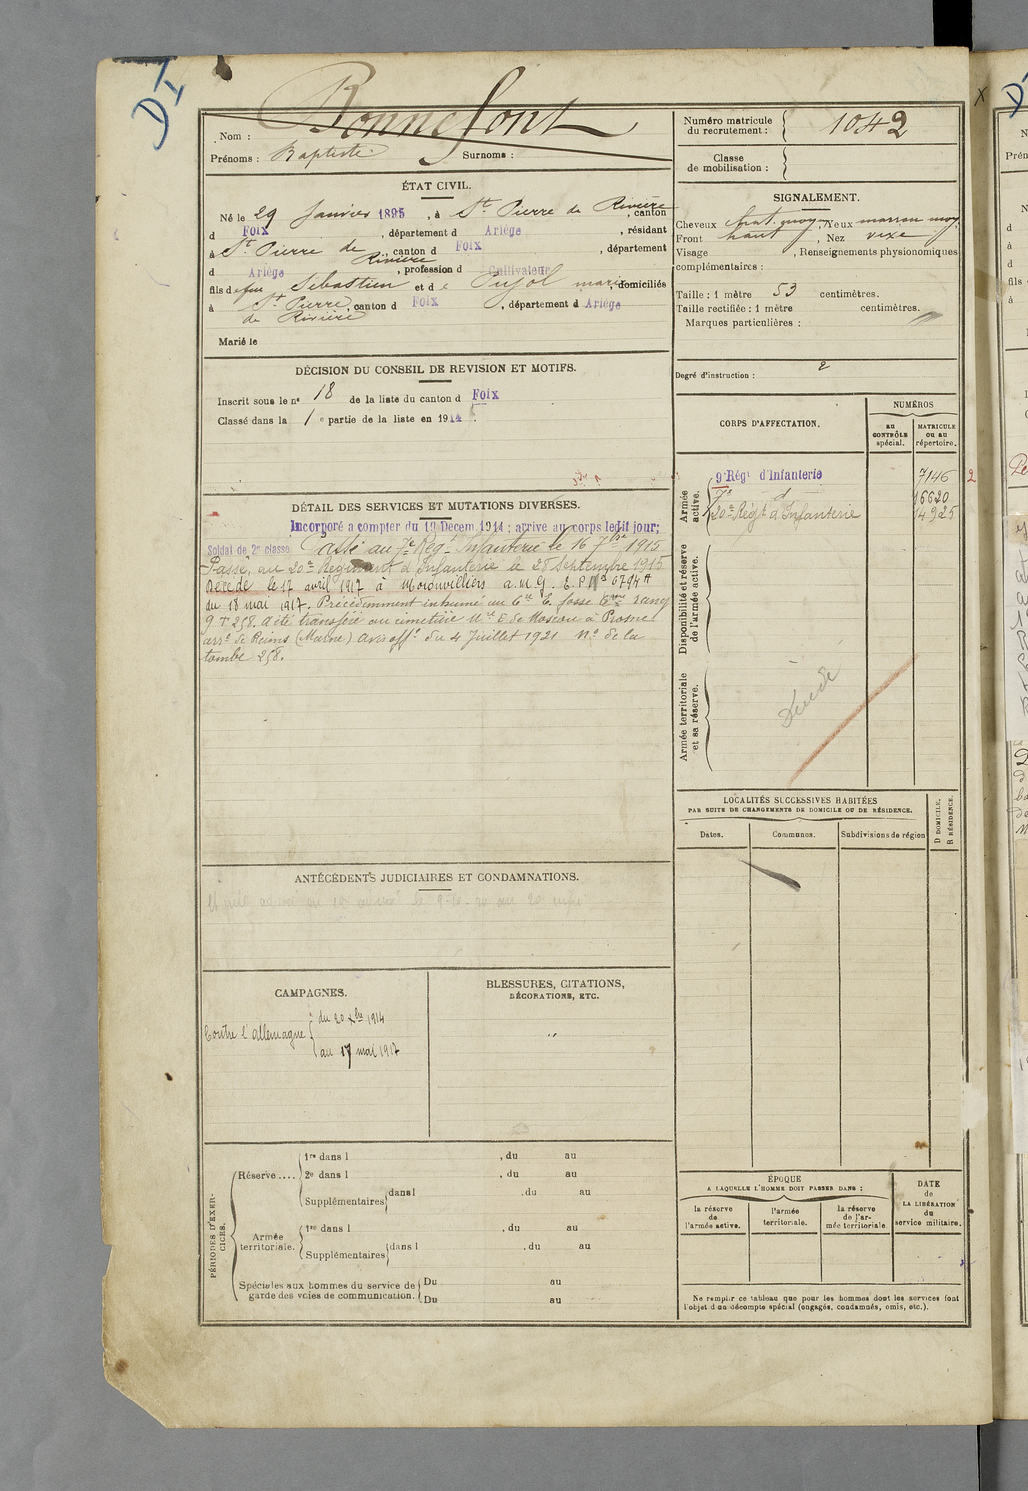 DI
Nom : Bonnefont
Prénoms : Baptiste Surnoms :
Numéro matricule
du recrutement : 1042
Classe
de mobilisation :
ÉTAT CIVIL.
Né le 29 Janvier 1895, à St. Pierre de Rivière, canton
d Foix, département d Ariège, résidant
à St. Pierre de Rivière, canton d Foix, département
d Ariège, profession d Cultivateur
fils de feu Sébastien et de Pujol marie, domiciliés
à St. Pierre de Rivière, canton d Foix, département d Ariège
Marié le
SIGNALEMENT.
Cheveux chat. moyen, Yeux marron moy.
Front haut, Nez vexe
Visage , Renseignements physionomiques
complémentaires :
Taille : 1 mètre 53 centimètres.
Taille rectifiée : 1 mètre centimètres.
Marques particulières :
Degré d'instruction : 2
DÉCISION DU CONSEIL DE REVISION ET MOTIFS.
Inscrit sous le nº 18 de la liste du canton d Foix
Classé dans la 1e partie de la liste en 1914
CORPS D'AFFECTATION.
NUMÉROS
AU CONTRÔLE spécial.
MATRICULE ou au répertoire.
Armée active.
9e Régt d'Infanterie 7146
7e d 16620
20e Régt d'Infanterie 14925
Disponibilité et réserve de l'armée active.
Armée territoriale et sa réserve.
Décédé
DÉTAIL DES SERVICES ET MUTATIONS DIVERSES.
Incorporé a compter du 19 Decem. 1914 ; arrive au corps ledit jour;
Soldat de 2e classe Passé au 7e Régt Infanterie le 16 7bre 1915
Passé au 20e Régiment d'Infanterie le 28 Septembre 1915
Décédé le 17 avril 1917 à Moronvilliers a.M.G. E.P. Md 6794 A
du 18 mai 1917. Précédemment inhumé au Cre E. fosse 6me rang
9 T 258. a été transféré au cimetière Mre E de Moscou à Prosnes
arrt de Reims (Marne) Avis offl du 4 Juillet 1921 Nº de la
tombe 258.
LOCALITÉS SUCCESSIVES HABITÉES
PAR SUITE DE CHANGEMENTS DE DOMICILE OU DE RÉSIDENCE.
Dates.
Communes.
Subdivisions de région
D DOMICILE.
R RÉSIDENCE.
ANTÉCÉDENTS JUDICIAIRES ET CONDAMNATIONS.
CAMPAGNES.
Contre l'allemagne
du 20 Xbre 1914
au 17 mai 1917
BLESSURES, CITATIONS,
DÉCORATIONS, ETC.
"
PÉRIODES D'EXERCICES.
Réserve....
1re dans l , du au
2e dans l , du au
Supplémentaires dans l , du au
Armée territoriale.
1re dans l , du au
Supplémentaires dans l , du au
Spéciales aux hommes du service de
garde des voies de communication.
Du au
Du au
ÉPOQUE
A LAQUELLE L'HOMME DOIT PASSER DANS :
la réserve de l'armée active.
l'armée territoriale.
la réserve de l'armée territoriale.
DATE
de
LA LIBÉRATION
du
service militaire.
Ne remplir ce tableau que pour les hommes dont les services font
l'objet d'un décompte spécial (engagés, condamnés, omis, etc.).